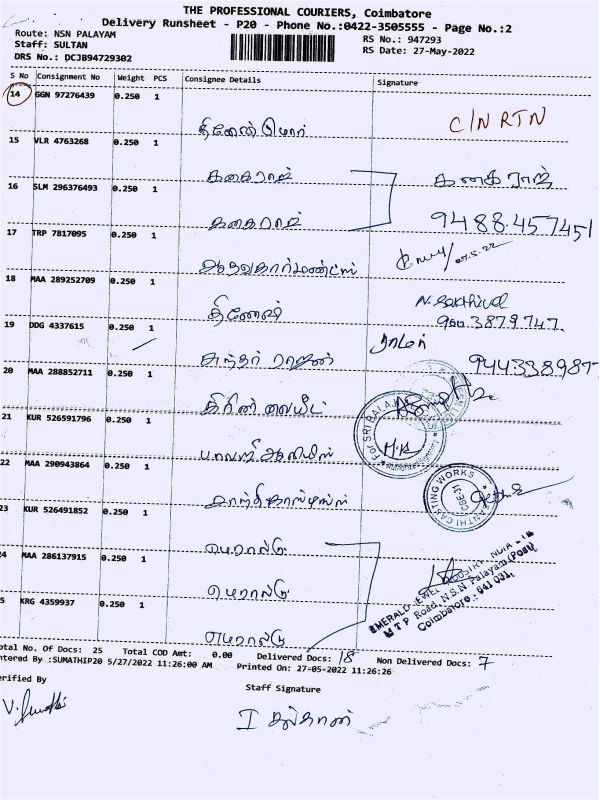 THE PROFESSIONAL COURIERS, Coimbatore
Delivery Runsheet - P20 - Phone No.:0422-3505555 - Page No.:2
Route: NSN PALAYAM
Staff: SULTAN
DRS No.: DCJB94729302
RS No.: 947293
RS Date: 27-May-2022
S No Consignment No Weight PCS Consignee Details Signature
14 GGN 97276439 0.250 1
C/N RTN
15 VLR 4763268 0.250 1
கனகராஜ்
16 SLM 296376493 0.250 1
9488.457451
17 TRP 7817095 0.250 1
18 MAA 289252709 0.250 1
தினேஷ்
N. Sakthivel
960.3879747.
19 DDG 4337615 0.250 1
சுந்தர் ராஜன்
ராமர்
944338987
20 MAA 288852711 0.250 1
21 KUR 526591796 0.250 1
FOR SRI BALA
M.K
22 MAA 290943864 0.250 1
ANTHI CASTING WORKS
CBE-31
23 KUR 526491852 0.250 1
எமரால்டு
24 MAA 286137915 0.250 1
எமரால்டு
EMERALD JEWEL INDUSTRY INDIA LTD
M T P Road, N.S.N. Palayam (Post)
Coimbatore - 641 031.
25 KRG 4359937 0.250 1
எமரால்டு
Total No. Of Docs: 25 Total COD Amt: 0.00 Delivered Docs: 18 Non Delivered Docs: 7
ntered By :SUMATHIP20 5/27/2022 11:26:00 AM Printed On: 27-05-2022 11:26:26
erified By
Staff Signature